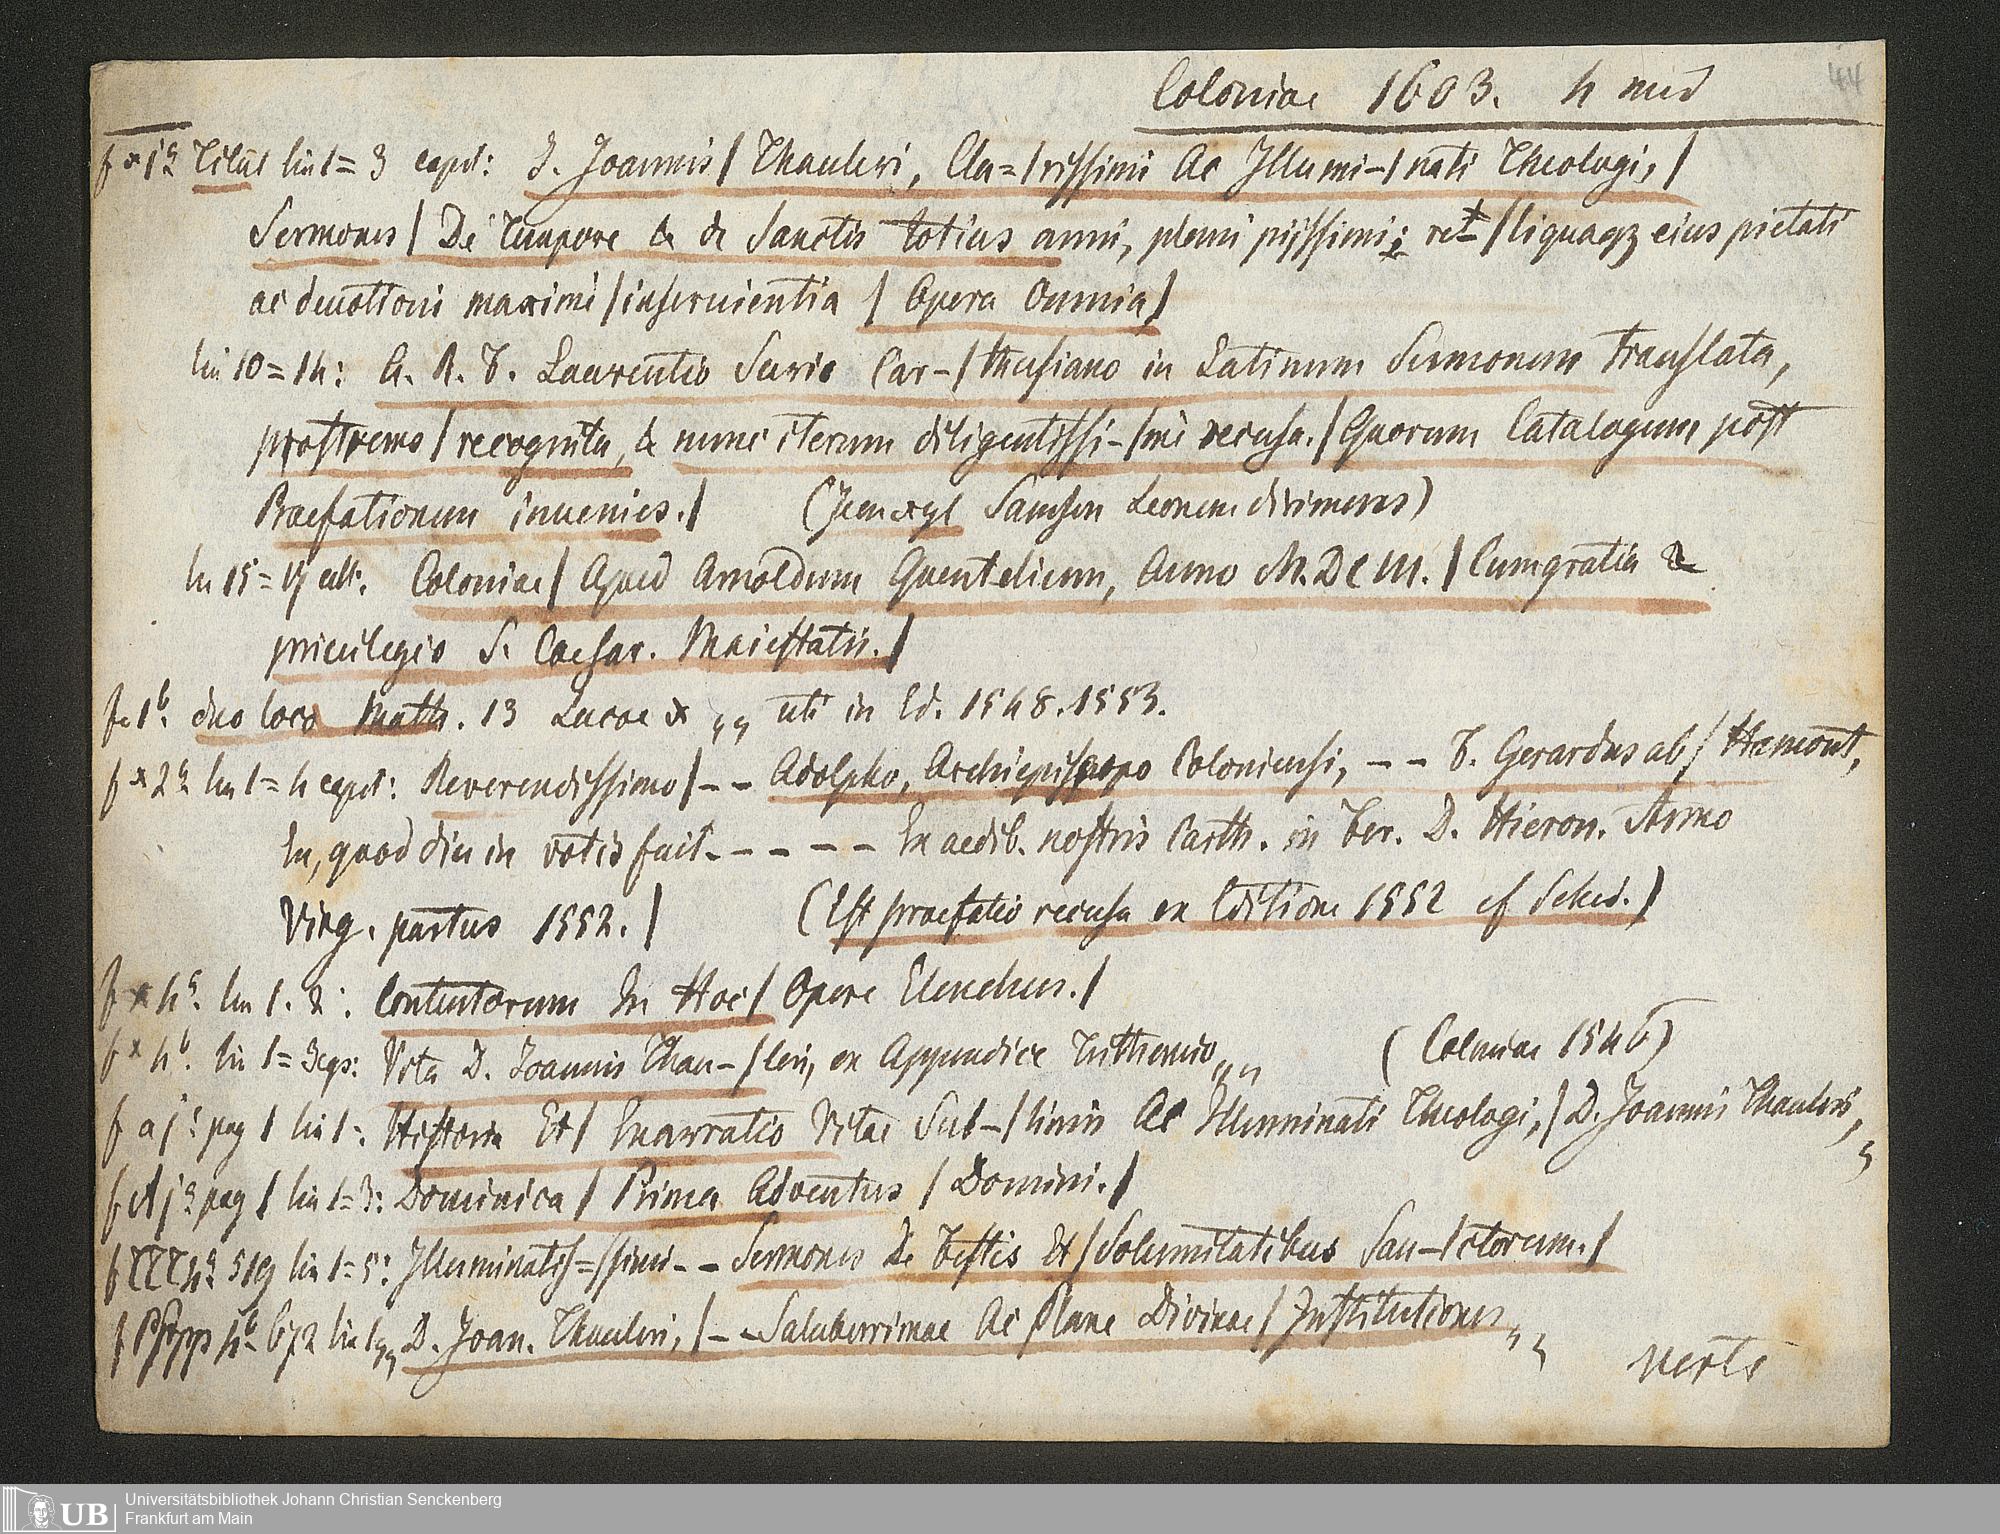 Coloniae 1603. 4 mid
44
f x 1a Titul lin 1=3 capit: D. Joannis / Thauleri, Cla=/rissimi Ac Illumi-/nati Theologi, /
Sermones / De Tempore & de Sanctis totius anni, plenè piissimi: /liquaqz eius pietati
ac devotioni maximè / inseruientia / Opera Omnia /
lin 10=14: A. R. F. Laurentio Surio Car-/thusiano in Latinum Sermonem translata,
postremo / recognita, & nunc iterum diligentissi-/mè recusa. / Quorum Catalogum post
Praefationem inuenies. / Samson Leonem dirimens)
lin 15=17 ult: Coloniae / Apud Arnoldum Quentelium, Anno M.DC III. / Cum gratia &
priuilegio S. Caesar. Maiestatis. /
f. 1b. duo loca Math. 13 Lucae x „ uti in Ed. 1548. 1553.
f x 2a lin 1=4 capit: Reverendissimo / -- Adolpho, Archiepiscopo Coloniensi, -- F. Gerardus ab / Hamont,
En, quod diu in votis fuit. ----- Ex aedib. nostris Carth. in fer. D. Hieron. Anno
Virg. partus 1552. / (Est praefatio recusa ex Editione 1552 cf Sched.)
f x 4a. lin 1. 2: Contentorum In Hoc / Opere Elenchus. /
f x 4b. lin 1= 3cps: Vita D. Joannis Thau-/leri, ex Appendice Trithemio „ (Coloniae 1546)
f a ja pag 1 lin 1=: Historia Et / Enarratio Vitae Sub-/limis Ac Illuminati Theologi, / D. Joannis Thauleri, „
f A ja pag 1 lin 1=3: Dominica / Prima Adventus / Domini. /
f TTT 4a 519 lin 1=5: Illuminatis=/simi -- Sermones De Festis Et / Solemnitatibus San-/ctorum. /
672 lin 1 „ D. Joan. Thauleri, / -- Saluberrimae Ac Plane Divinae / Institutiones „
verte
UB
Universitätsbibliothek Johann Christian Senckenberg
Frankfurt am Main